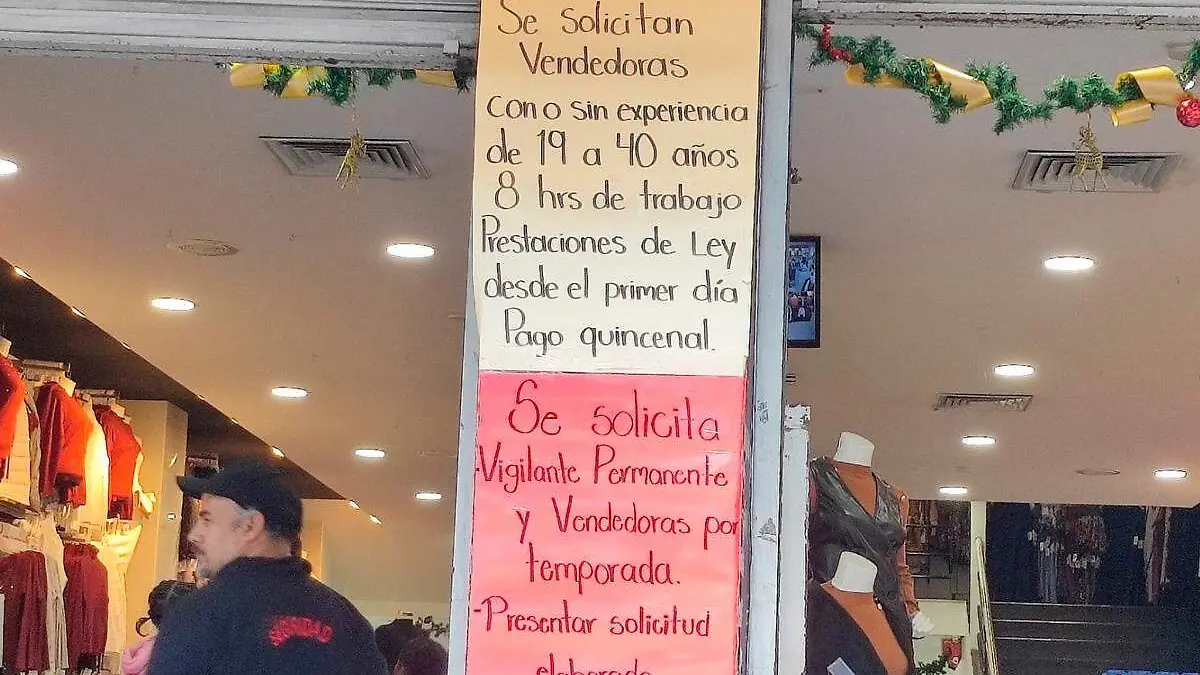 Se solicitan
Vendedoras
con o sin experiencia
de 19 a 40 años
8 hrs de trabajo
Prestaciones de Ley
desde el primer día
Pago quincenal.
Se solicita
-Vigilante Permanente
y Vendedoras por
temporada.
-Presentar solicitud
elaborada